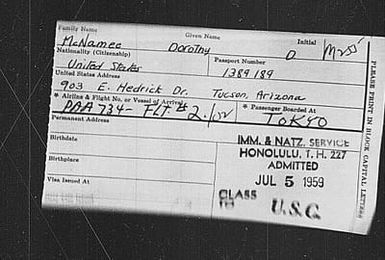 Family Name Given Name Initial
McNamee Dorothy D Mrs
Nationality (Citizenship) Passport Number
United States 1389189
United States Address
903 E. Hedrick Dr. Tucson, Arizona
* Airline & Flight No. or Vessel of Arrival * Passenger Boarded At
PAA 734- FLT # 2 TOKYO
Permanent Address
Birthdate
IMM. & NATZ. SERVICE
HONOLULU, T. H. 227
ADMITTED
Birthplace
JUL 5 1959
Visa Issued At
CLASS
TO
U.S.C.
PLEASE PRINT IN BLOCK CAPITAL LETTERS